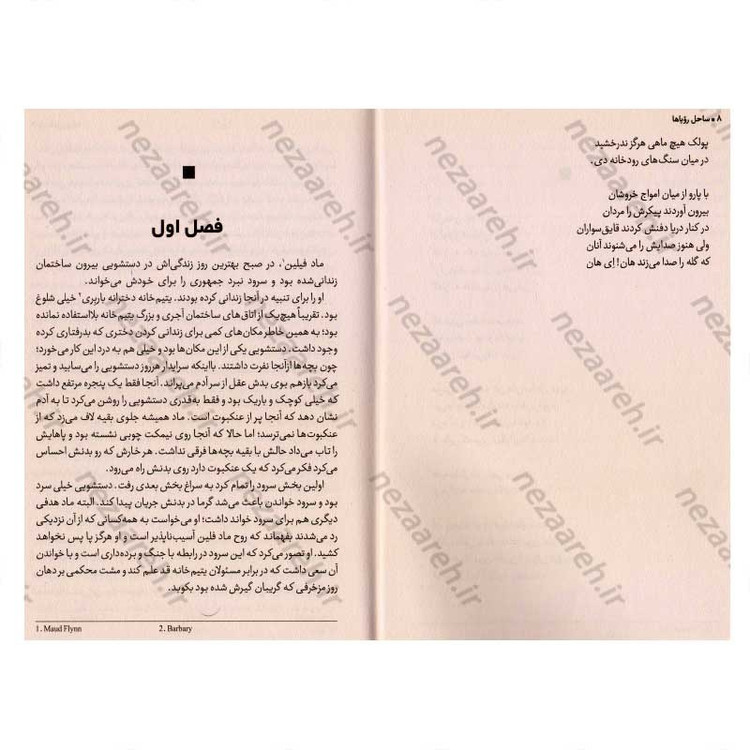 ۸ ■ ساحل رؤیاها
پولک هیچ ماهی هرگز ندرخشید
در میان سنگ‌های رودخانه دی.
با پارو از میان امواج خروشان
بیرون آوردند پیکرش را مردان
در کنار دریا دفنش کردند قایق‌سواران
ولی هنوز صدایش را می‌شنوند آنان
که گله را صدا می‌زند هان! اِی هان
■
فصل اول
ماد فیلین¹، در صبح بهترین روز زندگی‌اش در دستشویی بیرون ساختمان
زندانی‌شده بود و سرود نبرد جمهوری را برای خودش می‌خواند.
او را برای تنبیه در آنجا زندانی کرده بودند. یتیم‌خانه دخترانه باربری² خیلی شلوغ
بود. تقریباً هیچ‌یک از اتاق‌های ساختمان آجری و بزرگ یتیم‌خانه بلااستفاده نمانده
بود؛ به همین خاطر مکان‌های کمی برای زندانی کردن دختری که بدرفتاری کرده
وجود داشت. دستشویی یکی از این مکان‌ها بود و خیلی هم به درد این کار می‌خورد؛
چون بچه‌ها از آنجا نفرت داشتند. بااینکه سرایدار هرروز دستشویی را می‌سابید و تمیز
می‌کرد بازهم بوی بدش عقل از سر آدم می‌پراند. آنجا فقط یک پنجره مرتفع داشت
که خیلی کوچک و باریک بود و فقط به‌قدری دستشویی را روشن می‌کرد تا به آدم
نشان دهد که آنجا پر از عنکبوت است. ماد همیشه جلوی بقیه لاف می‌زد که از
عنکبوت‌ها نمی‌ترسد؛ اما حالا که آنجا روی نیمکت چوبی نشسته بود و پاهایش
را تاب می‌داد حالش با بقیه بچه‌ها فرقی نداشت. هر خارش که رو بدنش احساس
می‌کرد فکر می‌کرد که یک عنکبوت دارد روی بدنش راه می‌رود.
اولین بخش سرود را تمام کرد به سراغ بخش بعدی رفت. دستشویی خیلی سرد
بود و سرود خواندن باعث می‌شد گرما در بدنش جریان پیدا کند. البته ماد هدفی
دیگری هم برای سرود خواند داشت؛ او می‌خواست به همه‌کسانی که از آن نزدیکی
رد می‌شدند بفهماند که روح ماد فلین آسیب‌ناپذیر است و او هرگز پا پس نخواهد
کشید. او تصور می‌کرد که این سرود در رابطه با جنگ و برده‌داری است و با خواندن
آن سعی داشت که در برابر مسئولان یتیم‌خانه قد علم کند و مشت محکمی بر دهان
روز مزخرفی که گریبان گیرش شده بود بکوبد.
1. Maud Flynn 2. Barbary
nezaareh.ir
nezaareh.ir
nezaareh.ir
nezaareh.ir
nezaareh.ir
nezaareh.ir
nezaareh.ir
nezaareh.ir